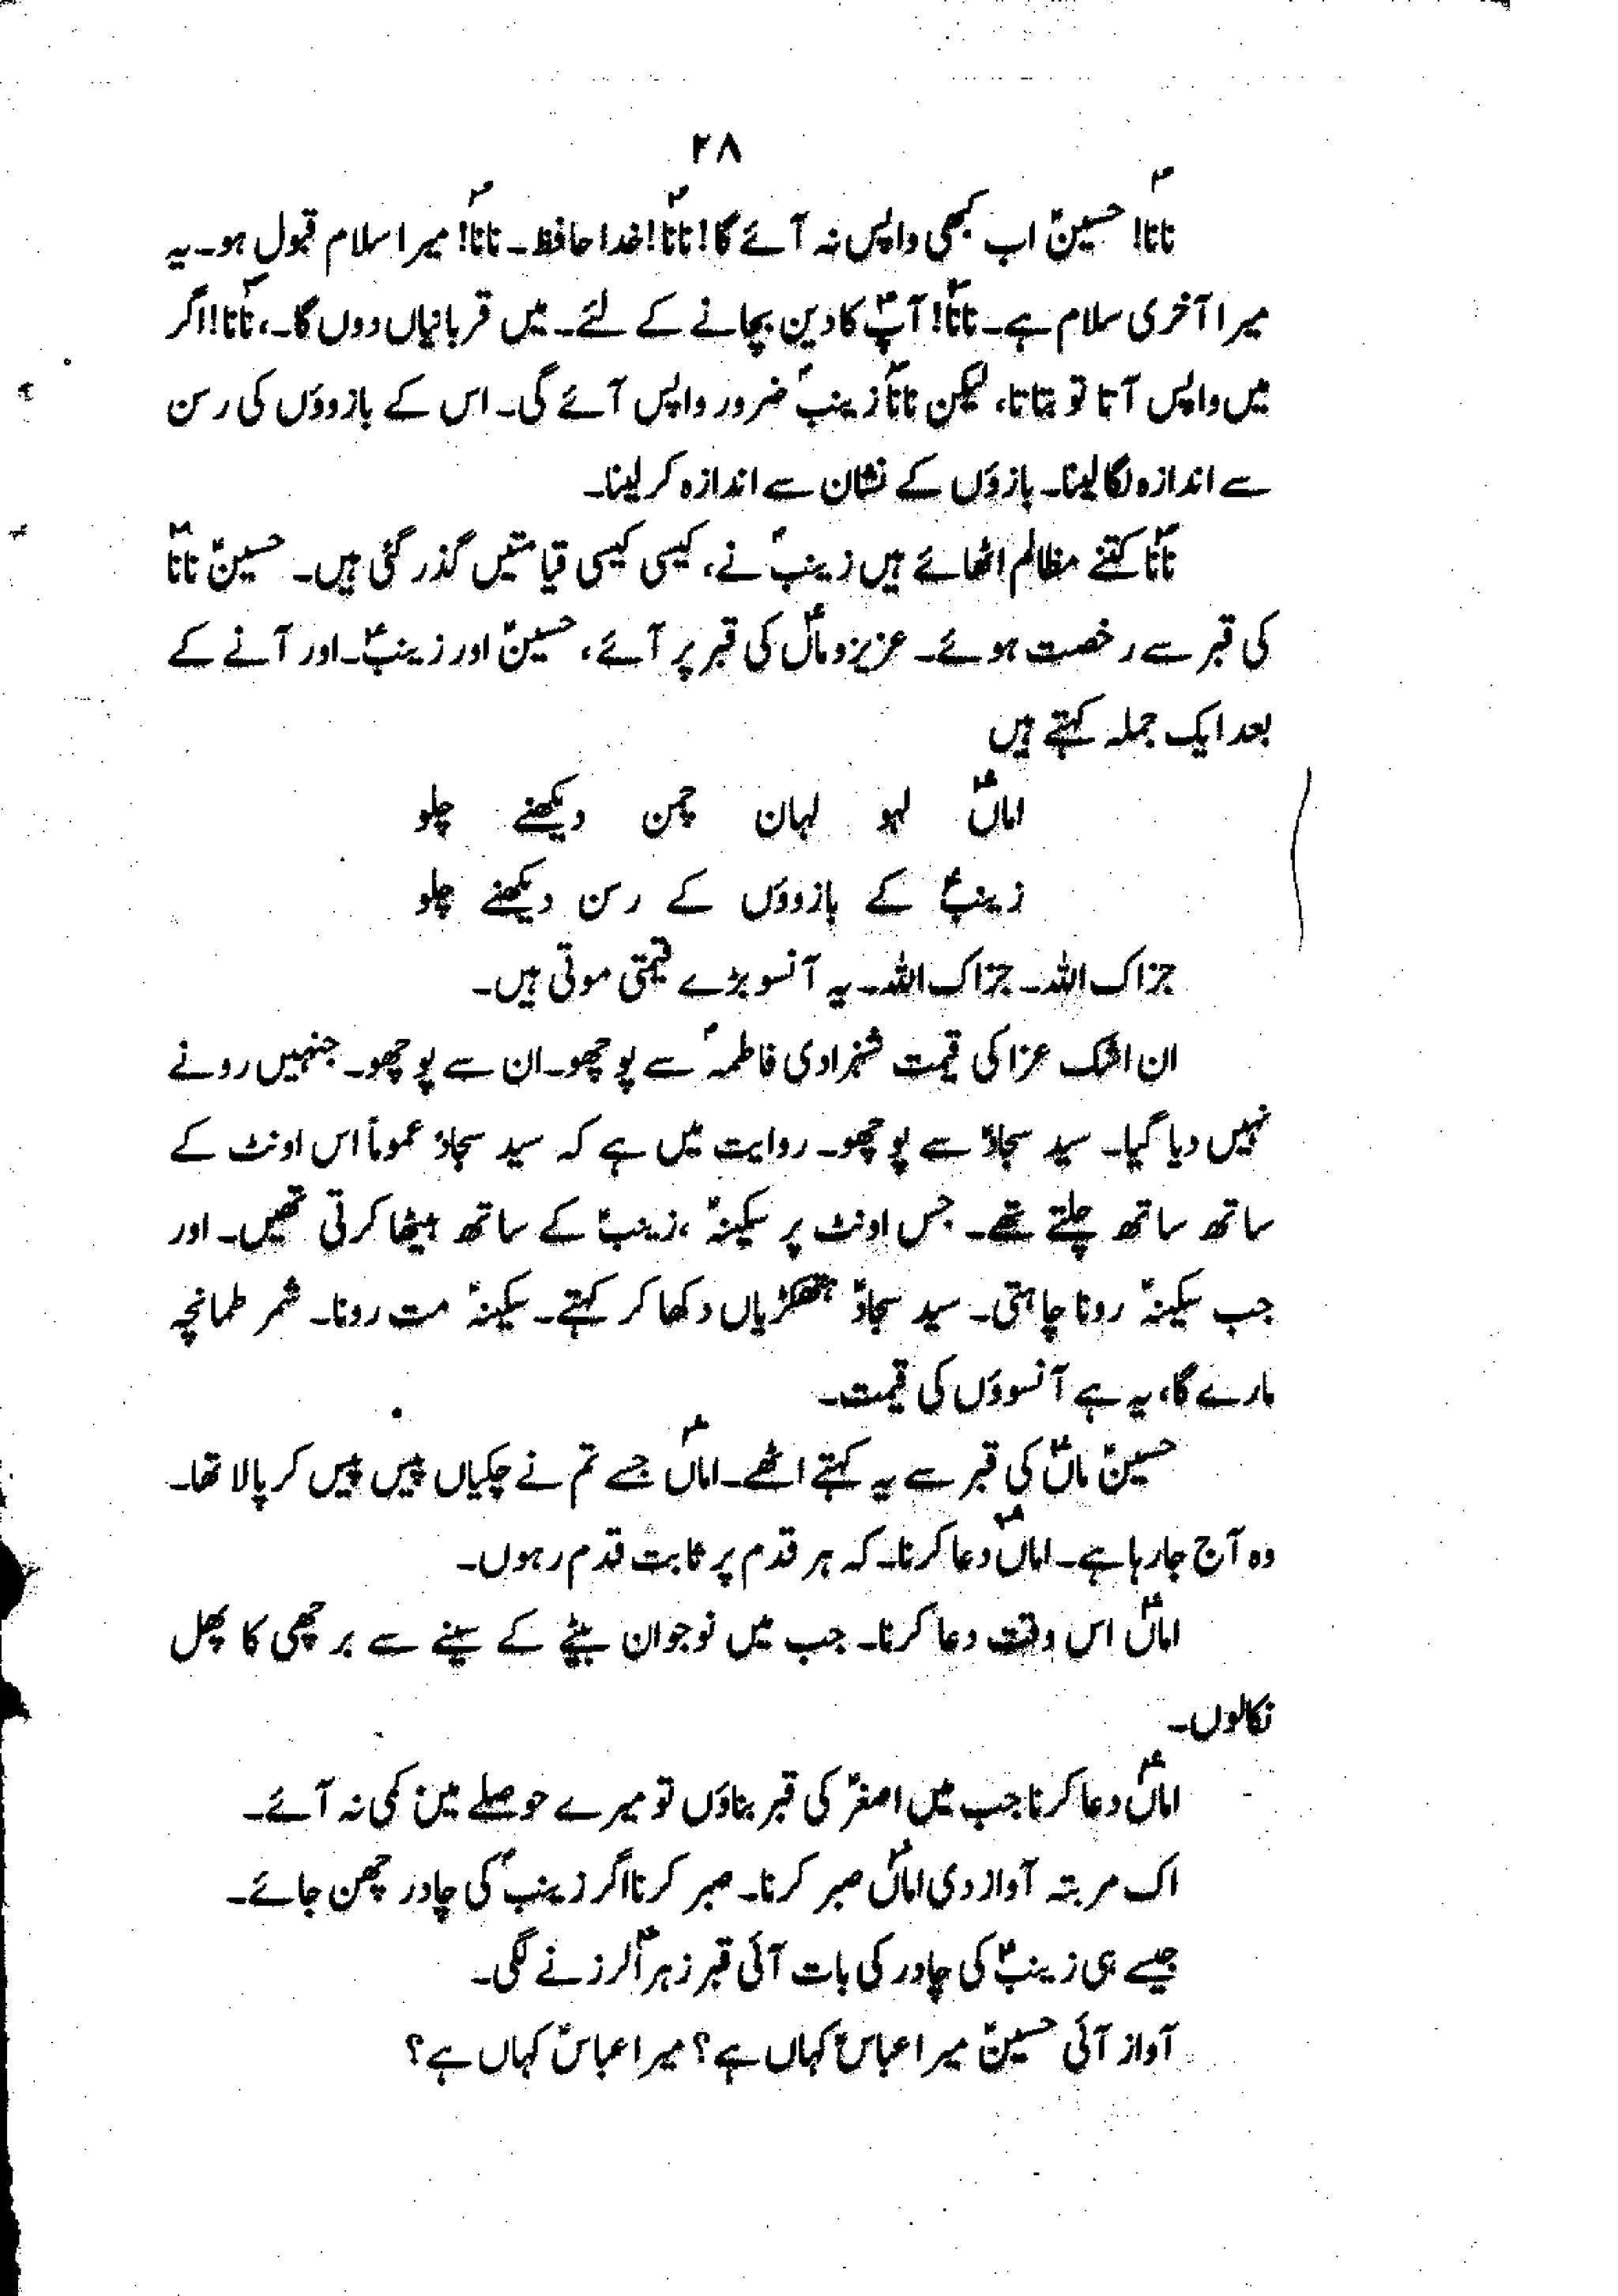 ۲۸
ناناؐ! حسینؑ اب کبھی واپس نہ آئے گا! ناناؐ! خدا حافظ۔ ناناؐ! میرا سلام قبول ہو۔ یہ
میرا آخری سلام ہے۔ ناناؐ! آپؐ کا دین بچانے کے لئے۔ میں قربانیاں دوں گا۔، ناناؐ! اگر
میں واپس آتا تو بتاتا، لیکن ناناؐ زینبؑ ضرور واپس آئے گی۔ اس کے بازوؤں کی رسن
سے اندازہ لگا لینا۔ بازؤں کے نشان سے اندازہ کر لینا۔
ناناؐ کتنے مظالم اٹھائے ہیں زینبؑ نے، کیسی کیسی قیامتیں گذر گئی ہیں۔ حسینؑ ناناؐ
کی قبر سے رخصت ہوئے۔ عزیزو ماںؑ کی قبر پر آئے، حسینؑ اور زینبؑ۔ اور آنے کے
بعد ایک جملہ کہتے ہیں
اماںؑ لہو لہان چمن دیکھنے چلو
زینبؑ کے بازوؤں کے رسن دیکھنے چلو
جزاک اللہ۔ جزاک اللہ۔ یہ آنسو بڑے قیمتی موتی ہیں۔
ان اشک عزا کی قیمت شہزادی فاطمہؑ سے پوچھو۔ ان سے پوچھو۔ جنہیں رونے
نہیں دیا گیا۔ سید سجادؑ سے پوچھو۔ روایت میں ہے کہ سید سجادؑ عموماً اس اونٹ کے
ساتھ ساتھ چلتے تھے۔ جس اونٹ پر سکینہؑ، زینبؑ کے ساتھ بیٹھا کرتی تھیں۔ اور
جب سکینہؑ رونا چاہتی۔ سید سجادؑ ہتھکڑیاں دکھا کر کہتے۔ سکینہؑ مت رونا۔ شمر طمانچہ
مارے گا، یہ ہے آنسوؤں کی قیمت۔
حسینؑ ماںؑ کی قبر سے یہ کہتے اٹھے۔ اماںؑ جسے تم نے چکیاں پیس پیس کر پالا تھا۔
وہ آج جا رہا ہے۔ اماںؑ دعا کرنا۔ کہ ہر قدم پر ثابت قدم رہوں۔
اماںؑ اس وقت دعا کرنا۔ جب میں نوجوان بیٹے کے سینے سے برچھی کا پھل
نکالوں۔
اماںؑ دعا کرنا جب میں اصغرؑ کی قبر بناؤں تو میرے حوصلے میں کمی نہ آئے۔
اک مرتبہ آواز دی اماںؑ صبر کرنا۔ صبر کرنا اگر زینبؑ کی چادر چھن جائے۔
جیسے ہی زینبؑ کی چادر کی بات آئی قبر زہراؑ لرزنے لگی۔
آواز آئی حسینؑ میرا عباسؑ کہاں ہے؟ میرا عباسؑ کہاں ہے؟